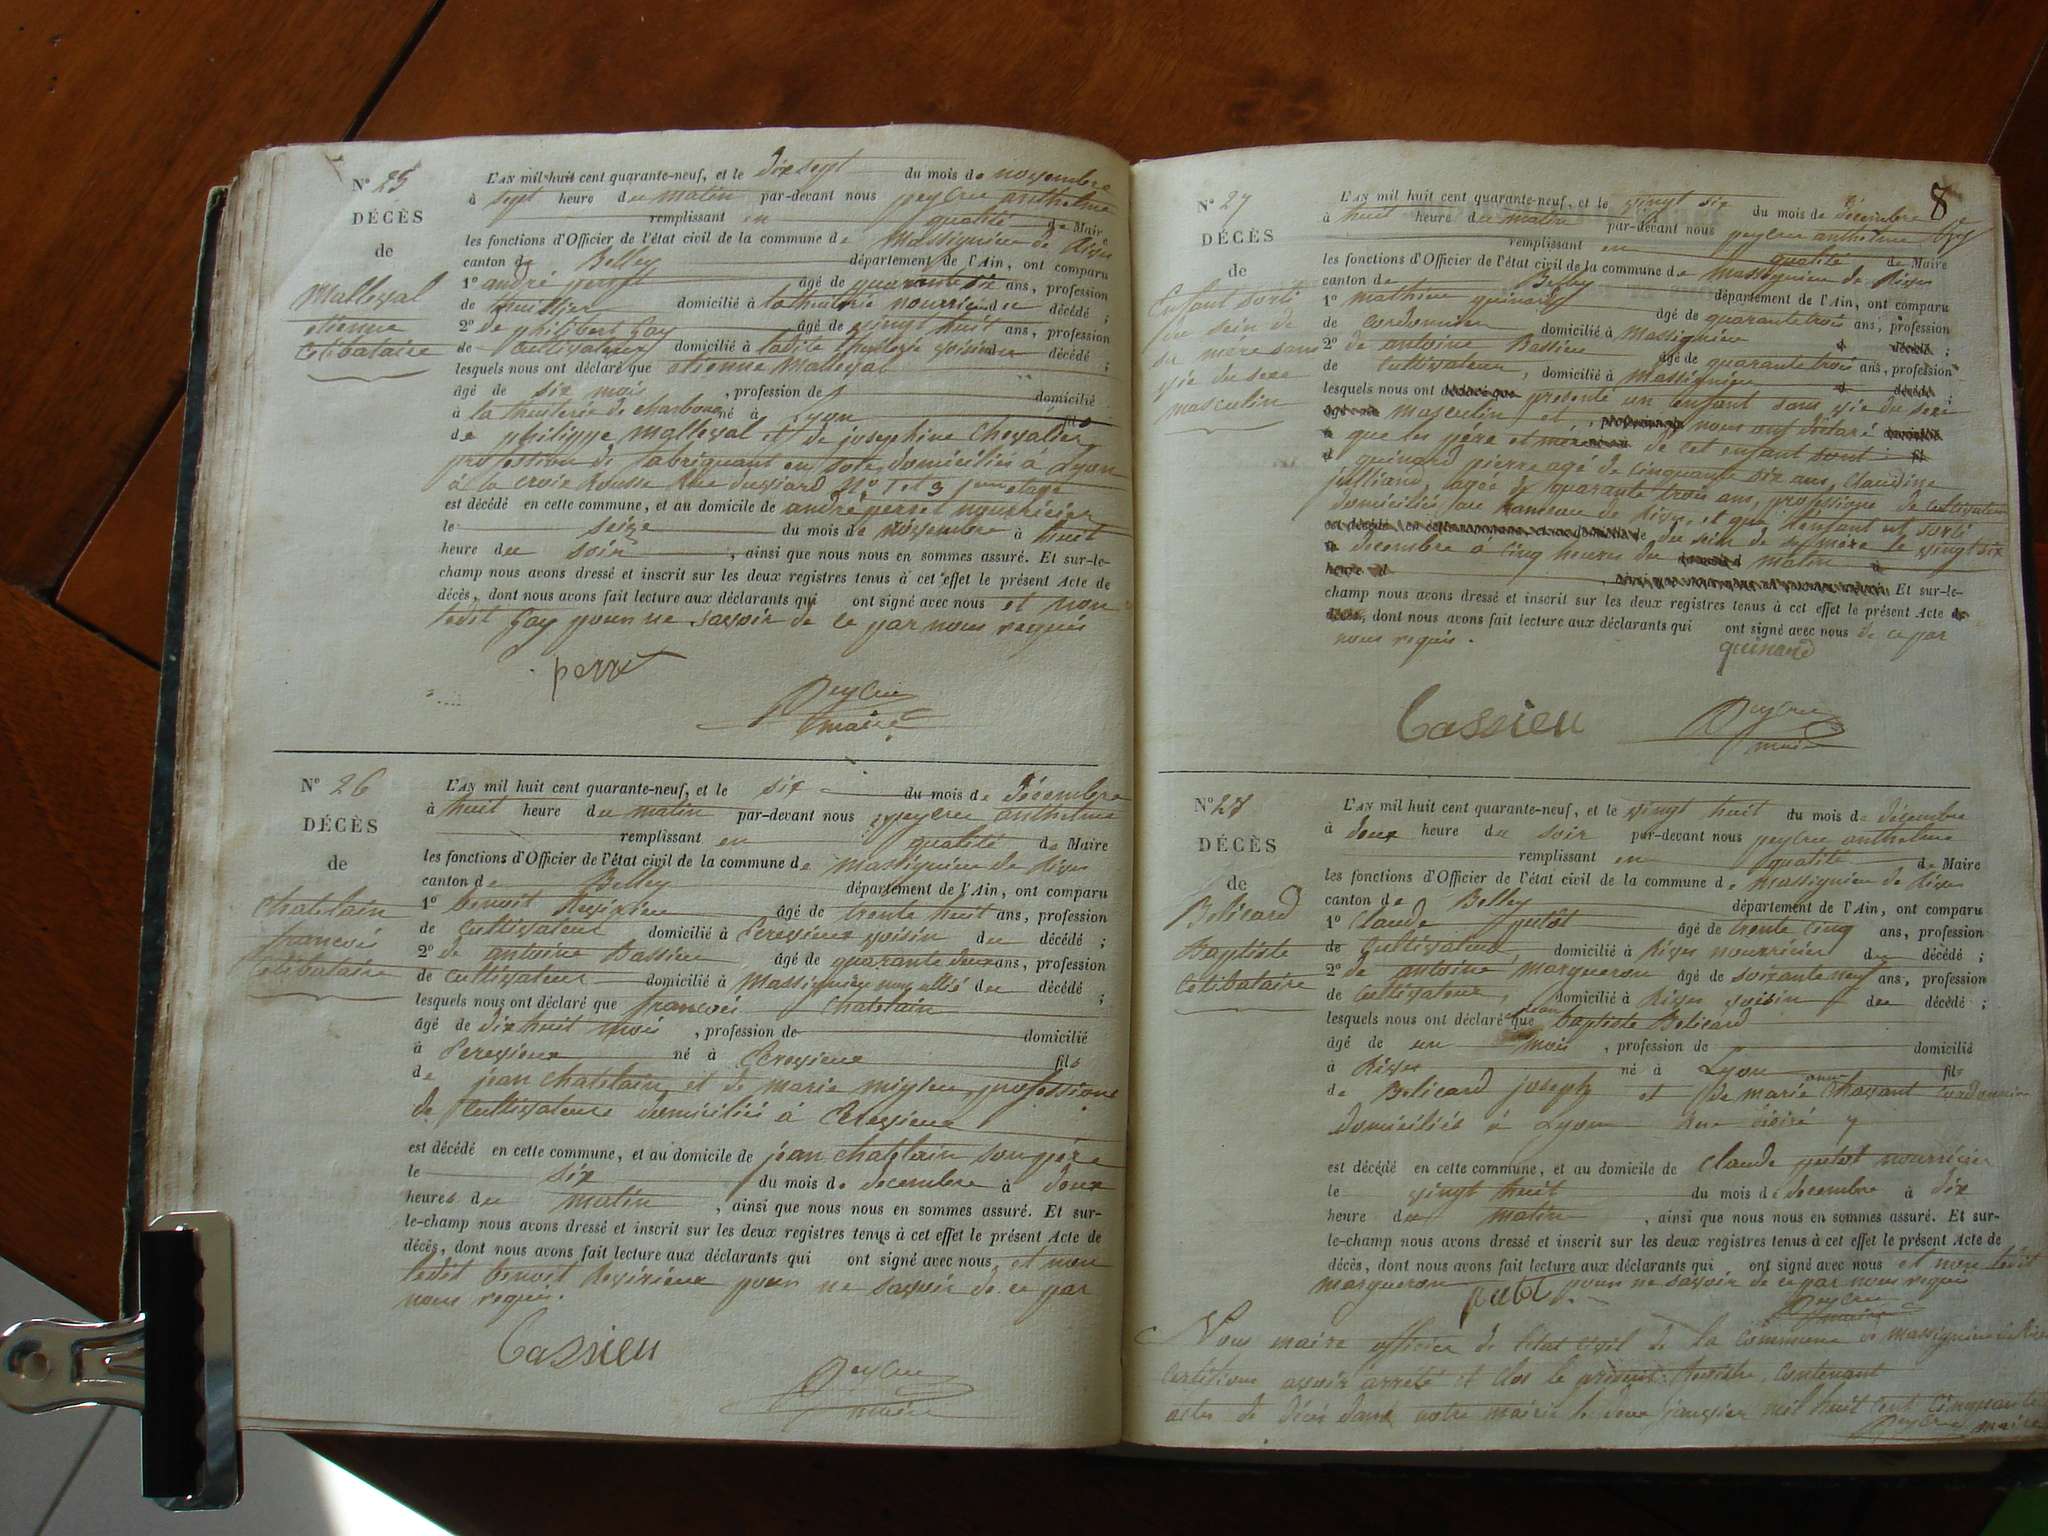 N° 25
DÉCÈS
de
Malleval
etienne
Celibataire
L'AN mil huit cent quarante-neuf, et le dix sept du mois de novembre
à sept heure du matin par-devant nous peycru anthelme
remplissant en qualité de Maire
les fonctions d'Officier de l'état civil de la commune de Massignieu de Rives
canton de Belley département de l'Ain, ont comparu
1° andré perret âgé de quarante six ans, profession
de domicilié à nourricier du décédé ;
2° de philibert fay âgé de vingt huit ans, profession
de Cultivateur domicilié à ladite voisin du décédé ;
lesquels nous ont déclaré que etienne Malleval
âgé de six mois , profession de domicilié
à la de charbonod né à Lyon fils
de philippe Malleval et de josephine Chevalier
profession de fabriquant en soie, domiciliés à Lyon
à la croix Rousse Rue N° 1 et 3 etage
est décédé en cette commune, et au domicile de andré perret nourricier
le seize du mois de novembre à huit
heure du soir , ainsi que nous nous en sommes assuré. Et sur-le-
champ nous avons dressé et inscrit sur les deux registres tenus à cet effet le présent Acte de
décès, dont nous avons fait lecture aux déclarants qui ont signé avec nous et non
ledit fay pour ne savoir de ce par nous requis
perret
Peycru
maire
N° 26
DÉCÈS
de
chatelain
francois
Celibataire
L'AN mil huit cent quarante-neuf, et le six du mois de décembre
à huit heure du matin par-devant nous peycru anthelme
remplissant en qualité de Maire
les fonctions d'Officier de l'état civil de la commune de massignieu de Rives
canton de Belley département de l'Ain, ont comparu
1° benoit âgé de trente huit ans, profession
de Cultivateur domicilié à voisin du décédé ;
2° de antoine Cassieu âgé de quarante deux ans, profession
de cultivateur domicilié à Massignieu non allié du décédé ;
lesquels nous ont déclaré que francois chatelain
âgé de dix huit mois , profession de domicilié
à né à fils
de jean chatelain et de marie profession
de Cultivateurs domiciliés à
est décédé en cette commune, et au domicile de jean chatelain son père
le six du mois de decembre à deux
heures du matin , ainsi que nous nous en sommes assuré. Et sur-
le-champ nous avons dressé et inscrit sur les deux registres tenus à cet effet le présent Acte de
décès, dont nous avons fait lecture aux déclarants qui ont signé avec nous et non
ledit benoit pour ne savoir de ce par
nous requis.
Cassieu
Peycru
maire
8
N° 27
DÉCÈS
de
Enfant sorti
du sein de
sa mère sans
vie du sexe
masculin
L'AN mil huit cent quarante-neuf, et le vingt six du mois de décembre
à huit heure du matin par-devant nous peycru anthelme
remplissant en qualité de Maire
les fonctions d'Officier de l'état civil de la commune de massignieu de Rives
canton de Belley département de l'Ain, ont comparu
1° mathieu guinard âgé de quarante trois ans, profession
de cordonnier domicilié à Massignieu
2° de antoine Cassieu âgé de quarante trois ans, profession
de Cultivateur, domicilié à Massignieu
lesquels nous ont présenté un enfant sans vie du sexe
masculin et nous ont déclaré
que les père et mère de cet enfant sont
guinard pierre agé de cinquante six ans, Claudine
julliand, agée de quarante trois ans, profession de cultivateurs
domiciliés au hameau de Rives, et que l'enfant est sorti
du sein de sa mère le vingt six
decembre à cinq heures du matin
Et sur-le-
champ nous avons dressé et inscrit sur les deux registres tenus à cet effet le présent Acte
dont nous avons fait lecture aux déclarants qui ont signé avec nous de ce par
nous requis.
guinard
Cassieu
Peycru
maire
N° 28
DÉCÈS
de
Belicard
Baptiste
Celibataire
L'AN mil huit cent quarante-neuf, et le vingt huit du mois de décembre
à deux heure du soir par-devant nous peycru anthelme
remplissant en qualité de Maire
les fonctions d'Officier de l'état civil de la commune de Massignieu de Rives
canton de Belley département de l'Ain, ont comparu
1° Claude putot âgé de trente cinq ans, profession
de Cultivateur, domicilié à Rives nourricier du décédé ;
2° de antoine margueron âgé de soixante neuf ans, profession
de Cultivateur, domicilié à Rives voisin du décédé ;
lesquels nous ont déclaré que jean baptiste Belicard
âgé de un mois , profession de domicilié
à Rives né à Lyon fils
de Belicard joseph et de marie chavant cordonnier
domiciliés à Lyon 7
est décédé en cette commune, et au domicile de Claude putot nourricier
le vingt huit du mois de decembre à dix
heure du matin , ainsi que nous nous en sommes assuré. Et sur-
le-champ nous avons dressé et inscrit sur les deux registres tenus à cet effet le présent Acte de
décès, dont nous avons fait lecture aux déclarants qui ont signé avec nous et non ledit
margueron pour ne savoir de ce par nous requis
putot
Peycru
maire
Nous maire officier de l'état civil de la commune de massignieu de Rives
Certifions avoir arrété et clos le présent Registre, contenant
actes de décès dans notre mairie le janvier mil huit cent cinquante
Peycru maire